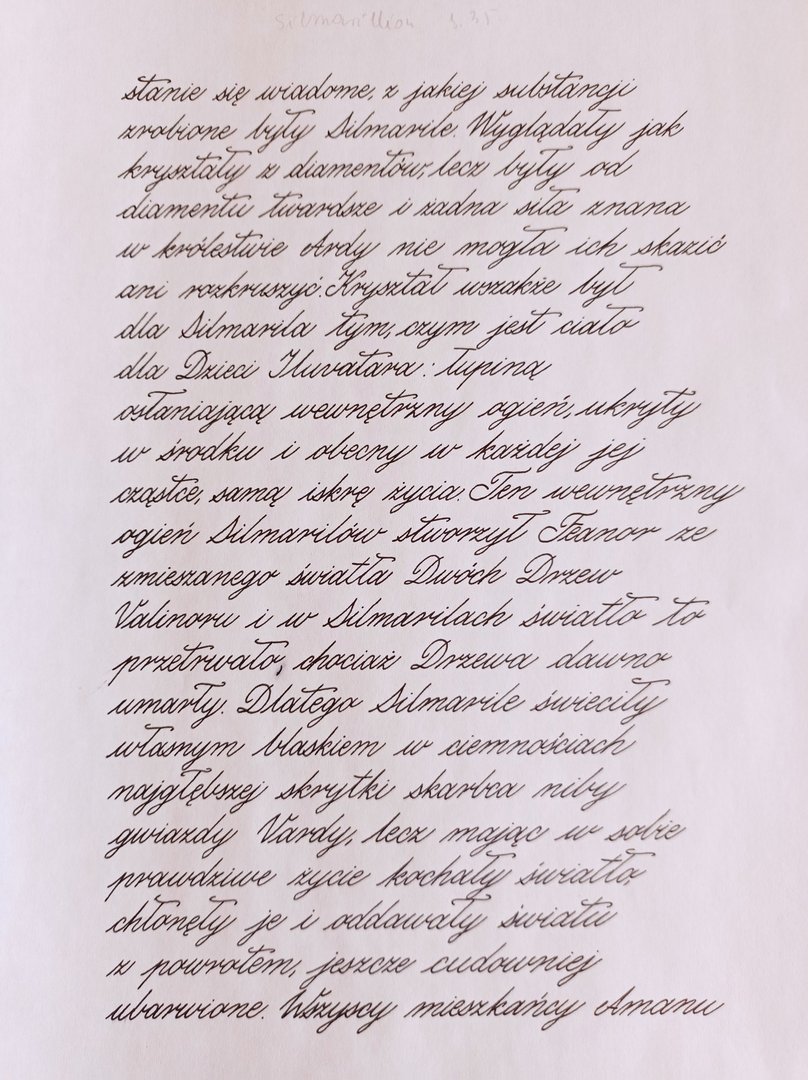 Silmarillion s. 35
stanie się wiadome, z jakiej substancji
zrobione były Silmarile. Wyglądały jak
kryształy z diamentów, lecz były od
diamentu twardsze i żadna siła znana
w królestwie Ardy nie mogła ich skazić
ani rozkruszyć. Kryształ wszakże był
dla Silmarila tym, czym jest ciało
dla Dzieci Iluvatara: łupiną
osłaniającą wewnętrzny ogień, ukryty
w środku i obecny w każdej jej
cząstce, samą iskrę życia. Ten wewnętrzny
ogień Silmarilów stworzył Fëanor ze
zmieszanego światła Dwóch Drzew
Valinoru i w Silmarilach światło to
przetrwało, chociaż Drzewa dawno
umarły. Dlatego Silmarile świeciły
własnym blaskiem w ciemnościach
najgłębszej skrytki skarbca niby
gwiazdy Vardy, lecz mając w sobie
prawdziwe życie kochały światło,
chłonęły je i oddawały światu
z powrotem, jeszcze cudowniej
ubarwione. Wszyscy mieszkańcy Amanu